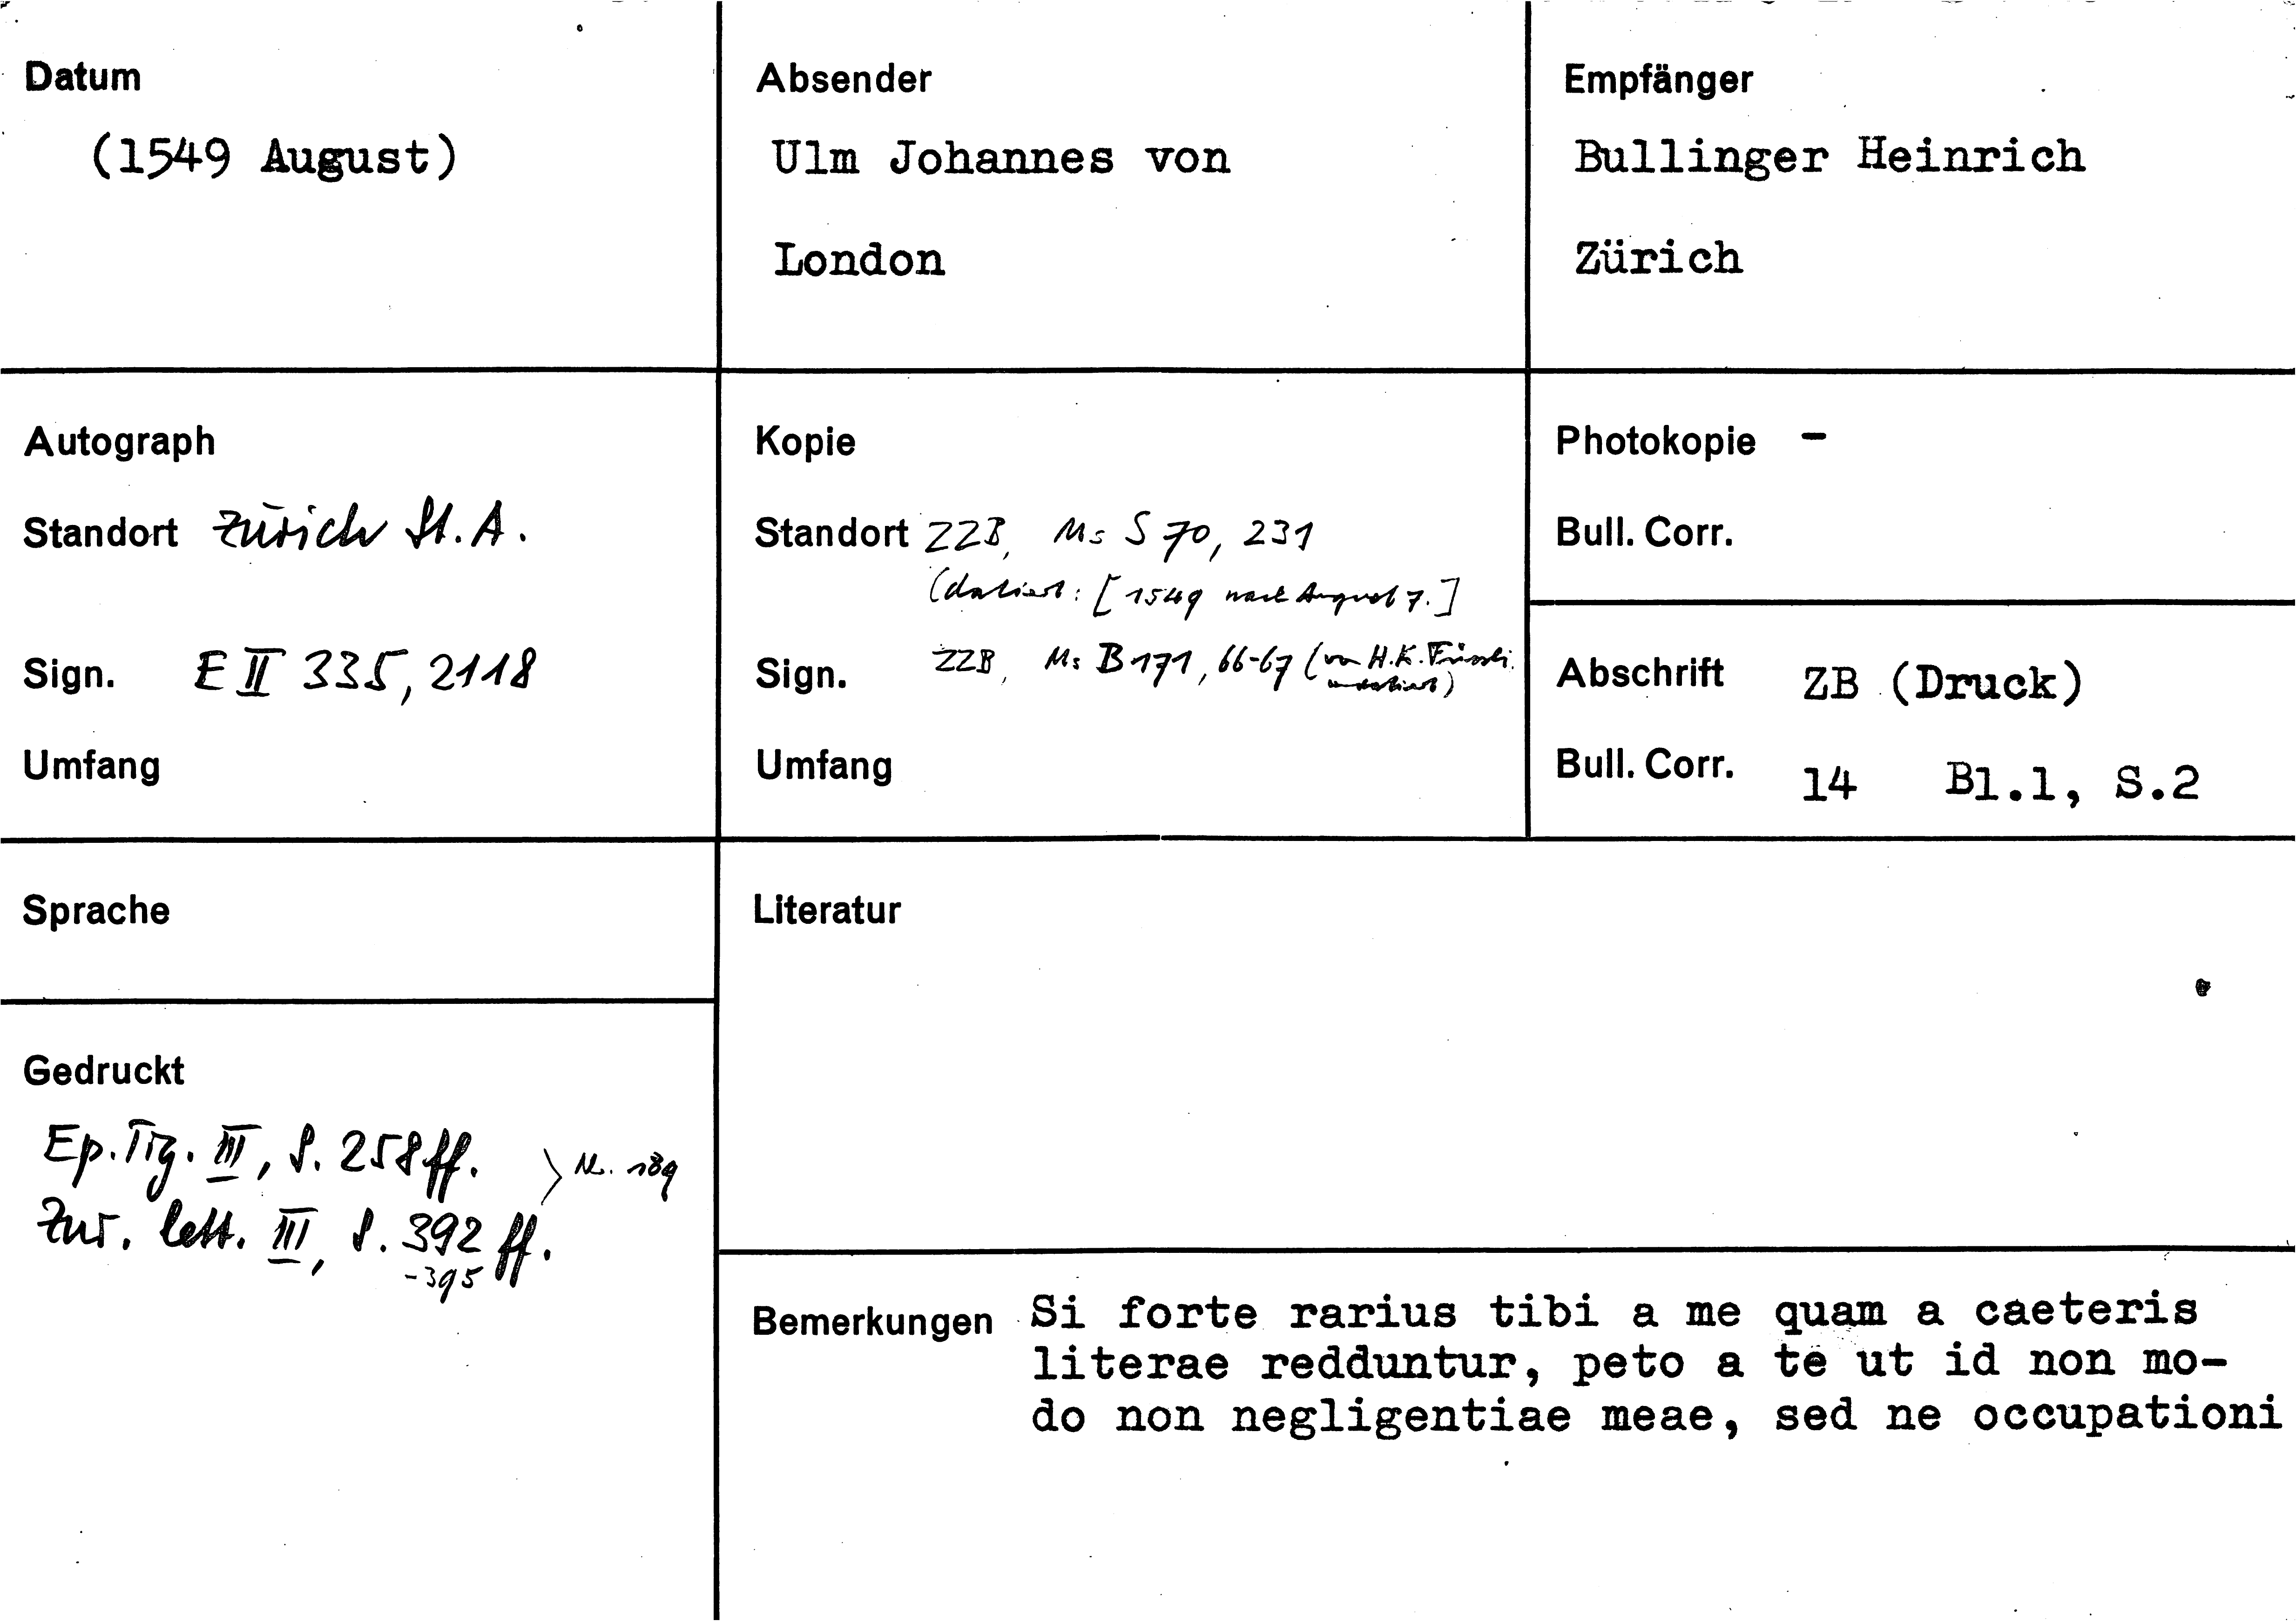 Datum
(1549 August)
Absender
Ulm Johannes von
London
Empfänger
Bullinger Heinrich
Zürich
Autograph
Standort Zürich St.A.
Sign. E II 335, 2118
Umfang
Kopie
Standort ZZB, Ms S 70, 231
(datiert: [1549 nach August 7.]
Sign. ZZB, Ms B 171, 66-67 (von H.K. Füssli.
undatiert)
Umfang
Photokopie -
Bull. Corr.
Abschrift ZB (Druck)
Bull. Corr. 14 Bl.1, S.2
Sprache
Literatur
Gedruckt
Ep. Tig. III, S. 258 ff.
> Nr. 189
Zur. lett. III, S. 392 ff.
-395
Bemerkungen Si forte rarius tibi a me quam a caeteris
literae redduntur, peto a te ut id non mo-
do non negligentiae meae, sed ne occupationi